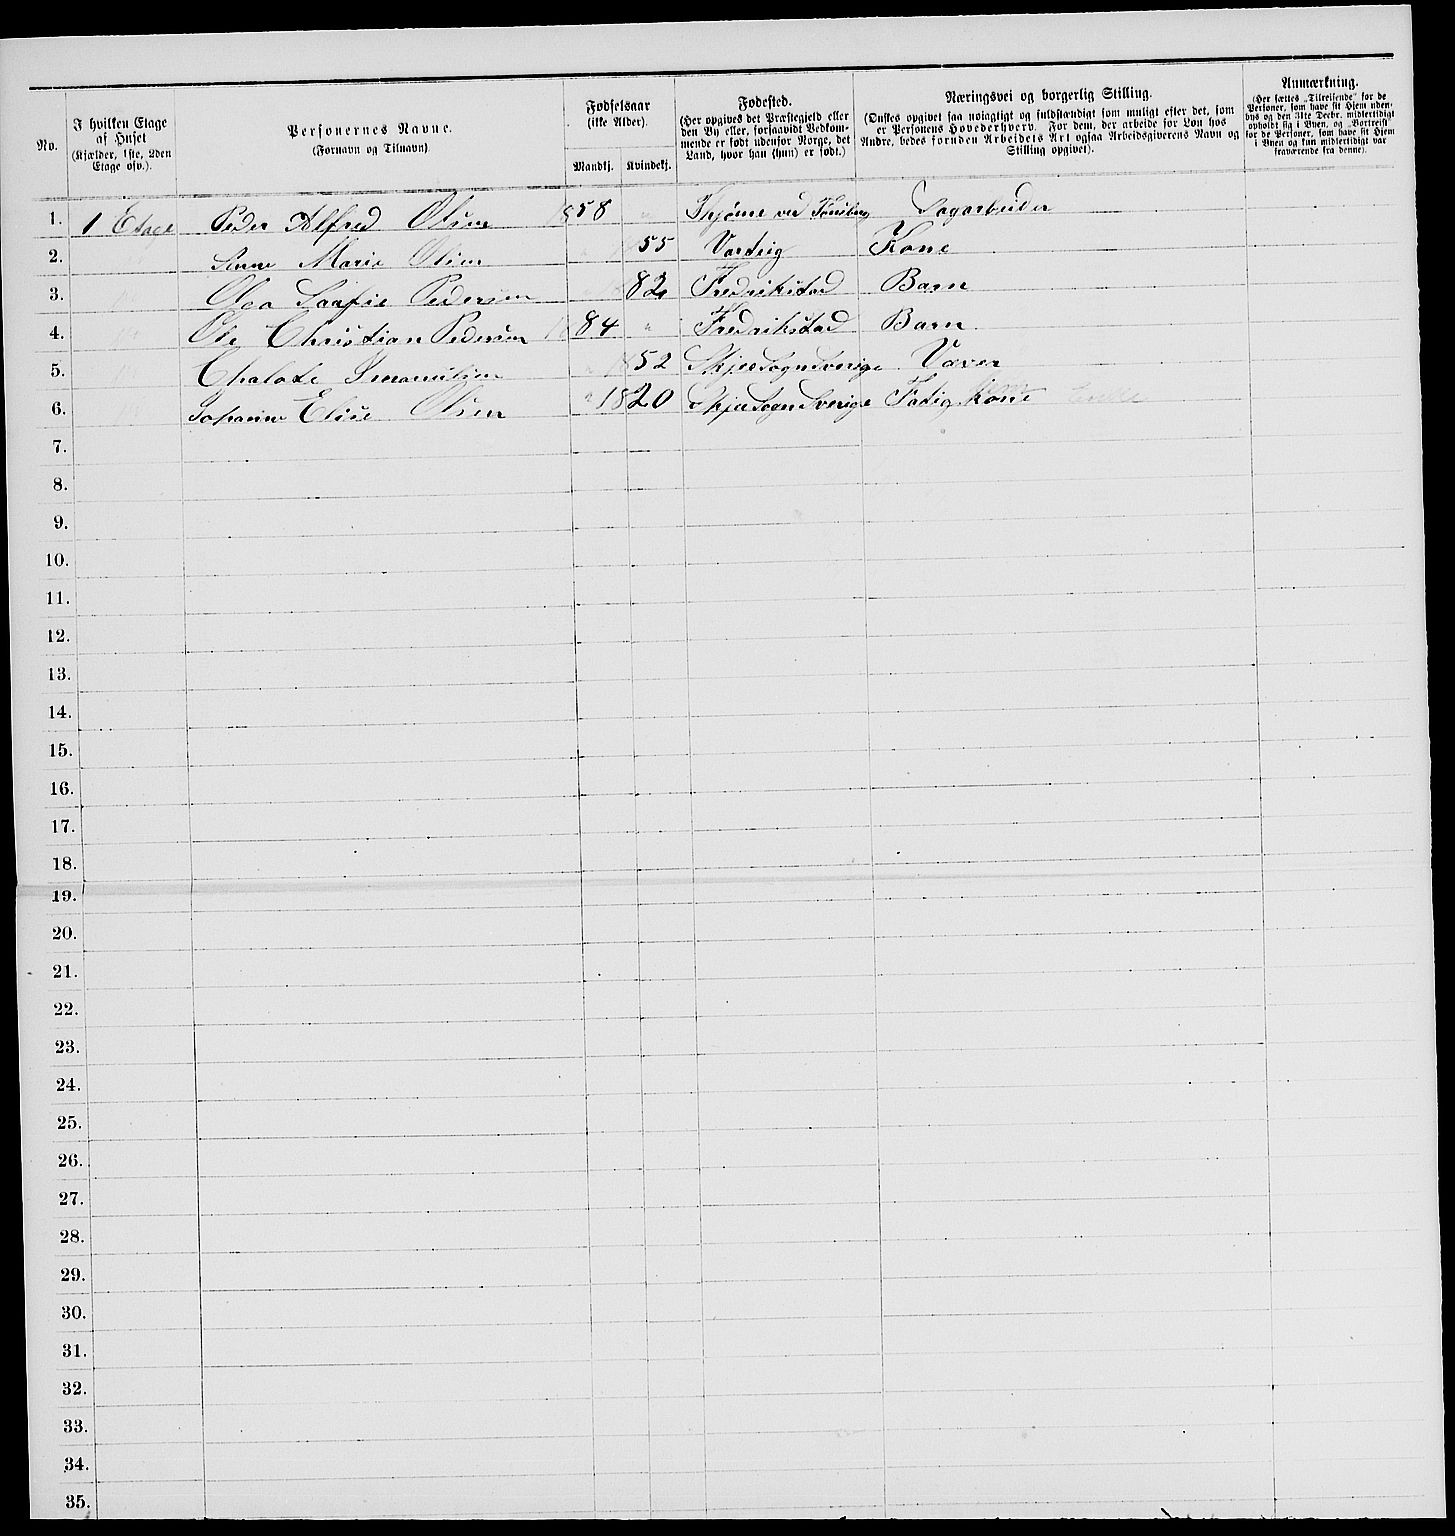 No.
I hvilken Etage
af Huset
(Kjælder, 1ste, 2den
Etage osv.).
Personernes Navne.
(Fornavn og Tilnavn).
Fødselsaar
(ikke Alder).
Mandkj. Kvindekj.
Fødested.
(Her opgives det Præstegjeld eller
den By eller, forsaavidt Vedkom-
mende er født udenfor Norge, det
Land, hvor han (hun) er født.)
Næringsvei og borgerlig Stilling.
(Ønskes opgivet saa nøiagtigt og fuldstændigt som muligt efter det, som
er Personens Hovederhverv. For dem, der arbeide for Løn hos
Andre, bedes foruden Arbeidets Art ogsaa Arbeidsgiverens Navn og
Stilling opgivet).
Anmærkning.
(Her sættes „Tilreisende“ for de
Personer, som have sit Hjem uden-
bys og den 31te Decbr. midlertidigt
opholdt sig i Byen, og „Bortreist“
for de Personer, som have sit Hjem
i Byen og kun midlertidigt var
fraværende fra denne).
1. 1 Etage Peder Alfred Olsen 1858 " Thjøme ved Tønsberg Sagarbeider
2. Anne Marie Olsen 55 Varteig Kone
3. Olga Saafie Pedersen 82 Fredrikstad Barn
4. Ole Christian Pedersen 84 " Fredrikstad Barn
5. Chalote 52 Skjee Sogn Sverige Væver
6. Johanne Elise Olsen " 1820 Skjee Sogn Sverige Fatig kone
7.
8.
9.
10.
11.
12.
13.
14.
15.
16.
17.
18.
19.
20.
21.
22.
23.
24.
25.
26.
27.
28.
29.
30.
31.
32.
33.
34.
35.